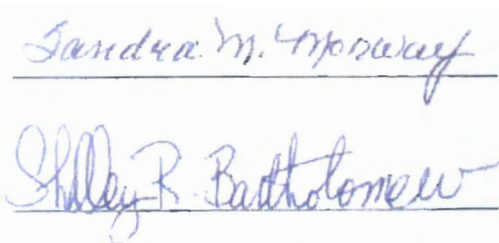 Sandra M. Morway
Shelley R. Bartholomew